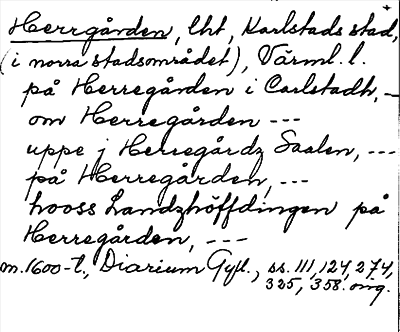 Herrgården, lht, Karlstads stad,
(i norra stadsområdet), Värml. l.
på Herregården i Carlstadh, -
om Herregården ---
uppe j Herregårdz Saalen, ---
på Herregården, ---
hooss Landzhöffdingen på
Herregården, ---
m. 1600-t., Diarium Gyll., ss. 111, 124, 274,
325, 358. orig.